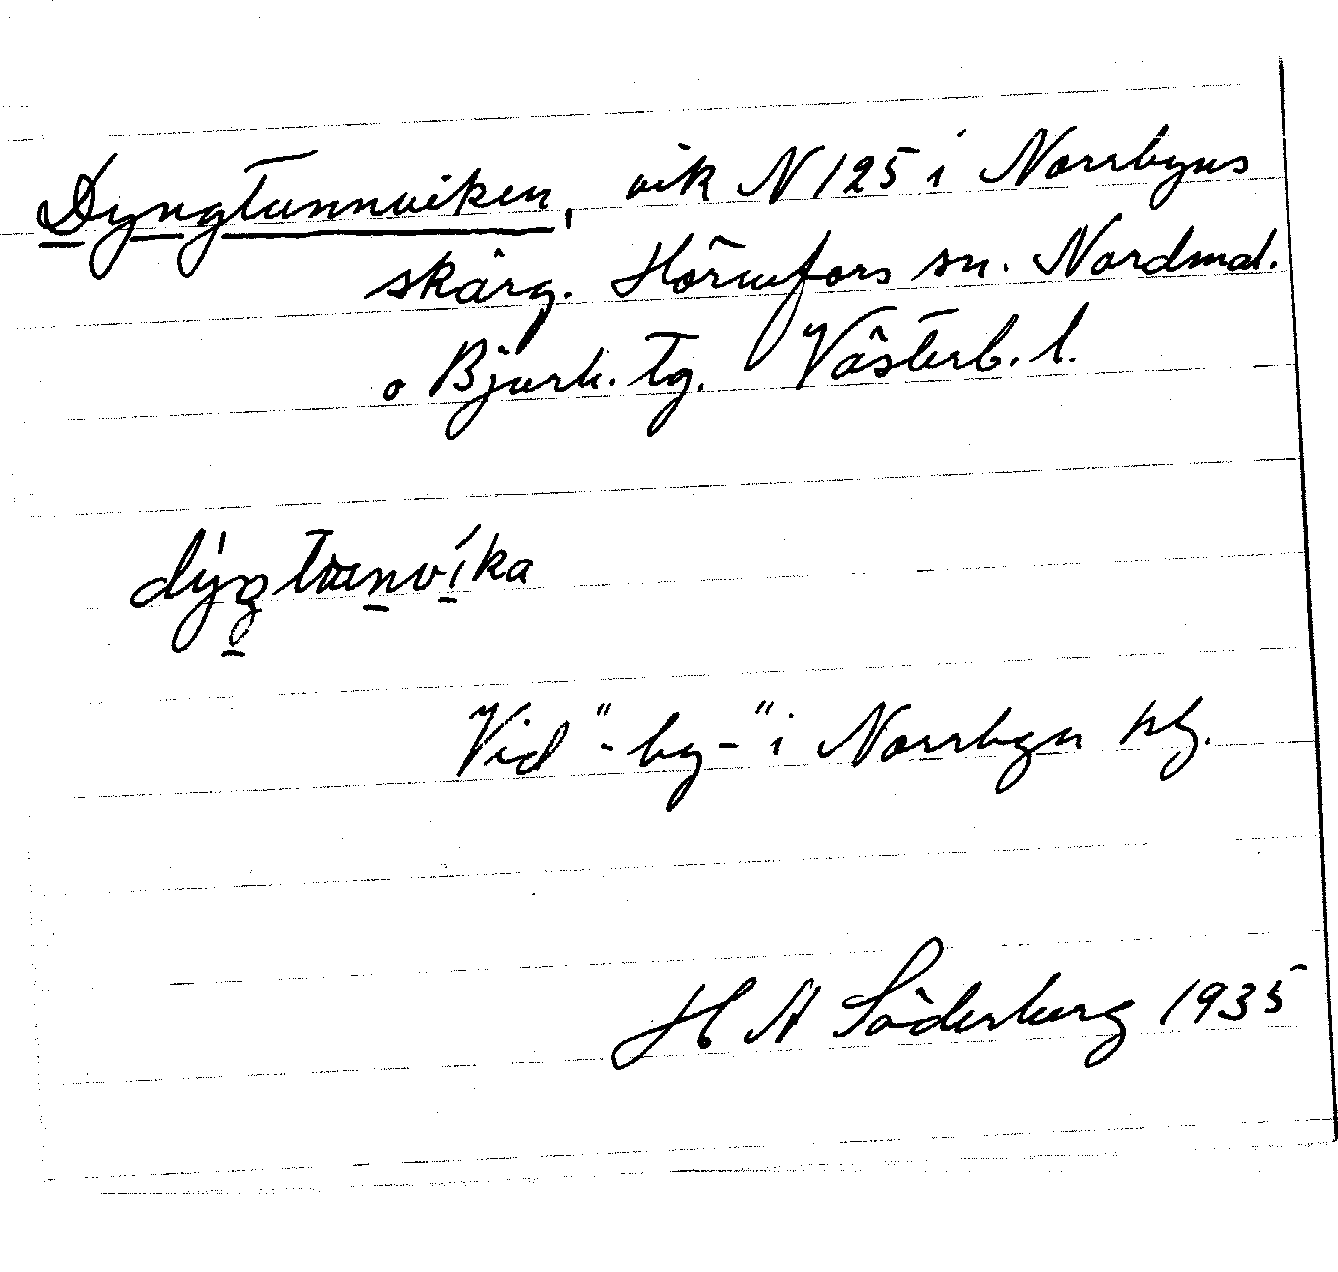 Dyngtunnviken, vik N 125 i Norrbyns
skärg. Hörnefors sn. Nordmal.
o Bjurh. tg. Västerb. l.
Vid "-by-" i Norrbyn kbg.
H A Söderberg 1935